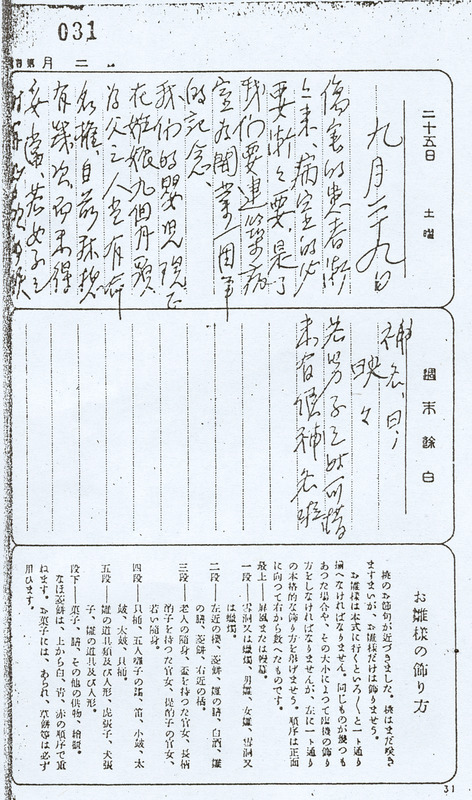 031
二月
二十五日 土曜
九月二十九日
傷害的患者漸
上来、病室的必
要漸々要、是了
我们要連築病
室为開業一周年
的記念、
我们的嬰児現下
在妊娠九個月頭、
为父之人当有命
名権、自前
有幾次而未得
妥當、若女子之
週末餘白
神名曰、
映々
若男子之
未有候補名
お雛様の飾り方
桃のお節句が近づきました。桃はまだ咲き
ますまいが、お雛様だけは飾りませう。
お雛様は本式に行くといろ〱と一ト通り
揃へなければなりません。同じものが幾つも
あつた場合や、その大小によつて臨機の飾り
方をしなければなりませんが、左に一ト通り
の本格的な飾り方を挙げませう。順序は正面
に向つて右から数へたものです。
最上――屏風または幔幕。
一段――雪洞又は蠟燭、男雛、女雛、雪洞又
は蠟燭。
二段――左近の櫻、菱餅、雛の膳、白酒、雛
の膳、菱餅、右近の橘。
三段――老人の随身、盃を持つた官女、長柄
の銚子を持つた官女、提銚子の官女、
若い随身。
四段――貝桶、五人囃子の謡、笛、小鼓、大
鼓、太鼓、貝桶。
五段――雛の道具類及び人形、虎張子、犬張
子、雛の道具及び人形。
段下――菓子、膳、その他の供物、繪櫃。
なほ菱餅は、上から白、青、赤の順序で重
ねます。お菓子には、あられ、草餅等は必ず
用ひます。
31